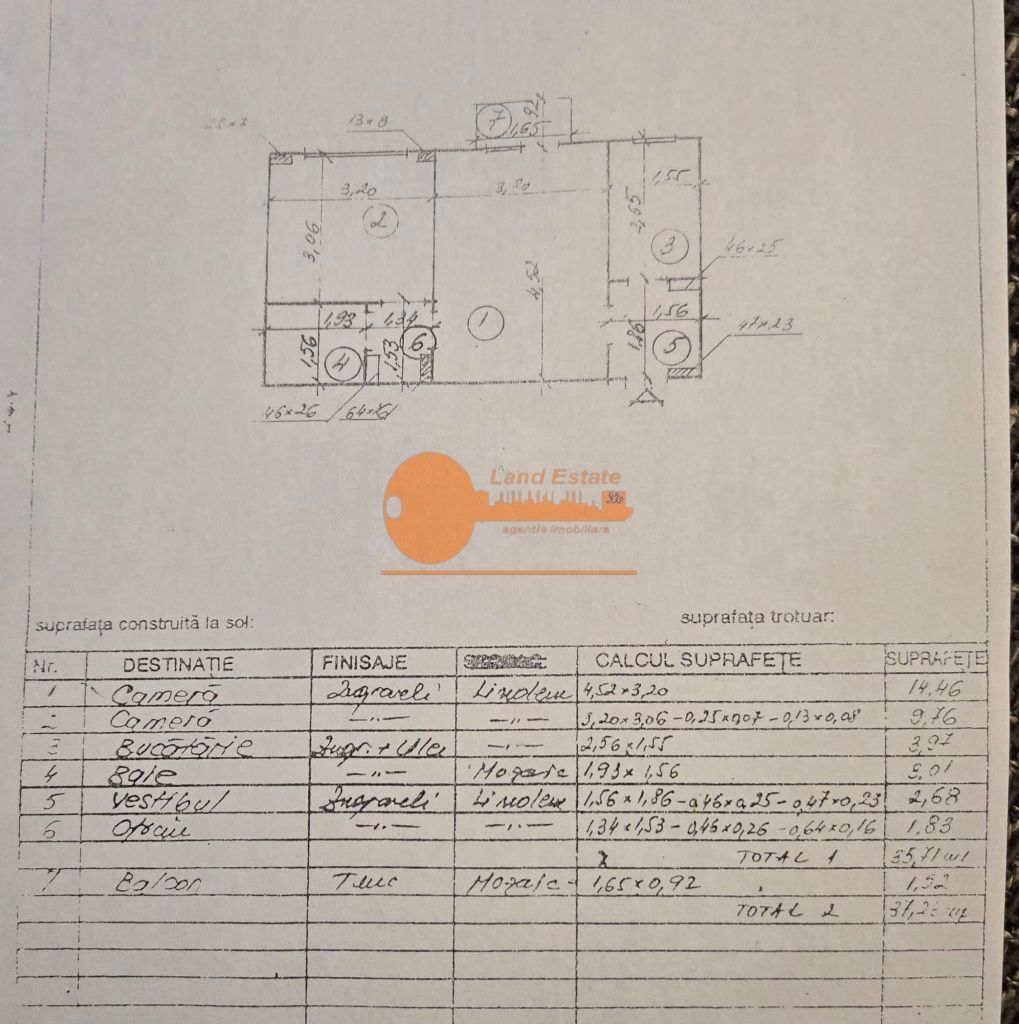 25×7
13×8
7
92
1,65
3,20
3,20
1,55
2
3,06
2,65
3
46×25
4,52
1,93
1,34
1
1,56
47×23
1,56
4
1,53
6
1,86
5
46×26
64×16
Land Estate
agentie imobiliara
suprafaţa construită la sol:
suprafaţa trotuar:
Nr. DESTINAŢIE FINISAJE CALCUL SUPRAFEŢE SUPRAFEŢE
1 Cameră Zugraveli Linoleu 4,52×3,20 14,46
2 Cameră —〃— —〃— 3,20×3,06 -0,25×0,07 -0,13×0,08 9,76
3 Bucătărie Zugr. + Ulei —〃— 2,56×1,55 3,97
4 Baie —〃— Mozaic 1,93×1,56 3,01
5 Vestibul Zugraveli Linoleu 1,56×1,86 -0,46×0,25 -0,47×0,23 2,68
6 Oficiu —〃— —〃— 1,34×1,53 -0,46×0,26 -0,64×0,16 1,83
TOTAL 1 35,71
7 Balcon Tenc Mozaic 1,65×0,92 1,52
TOTAL 2